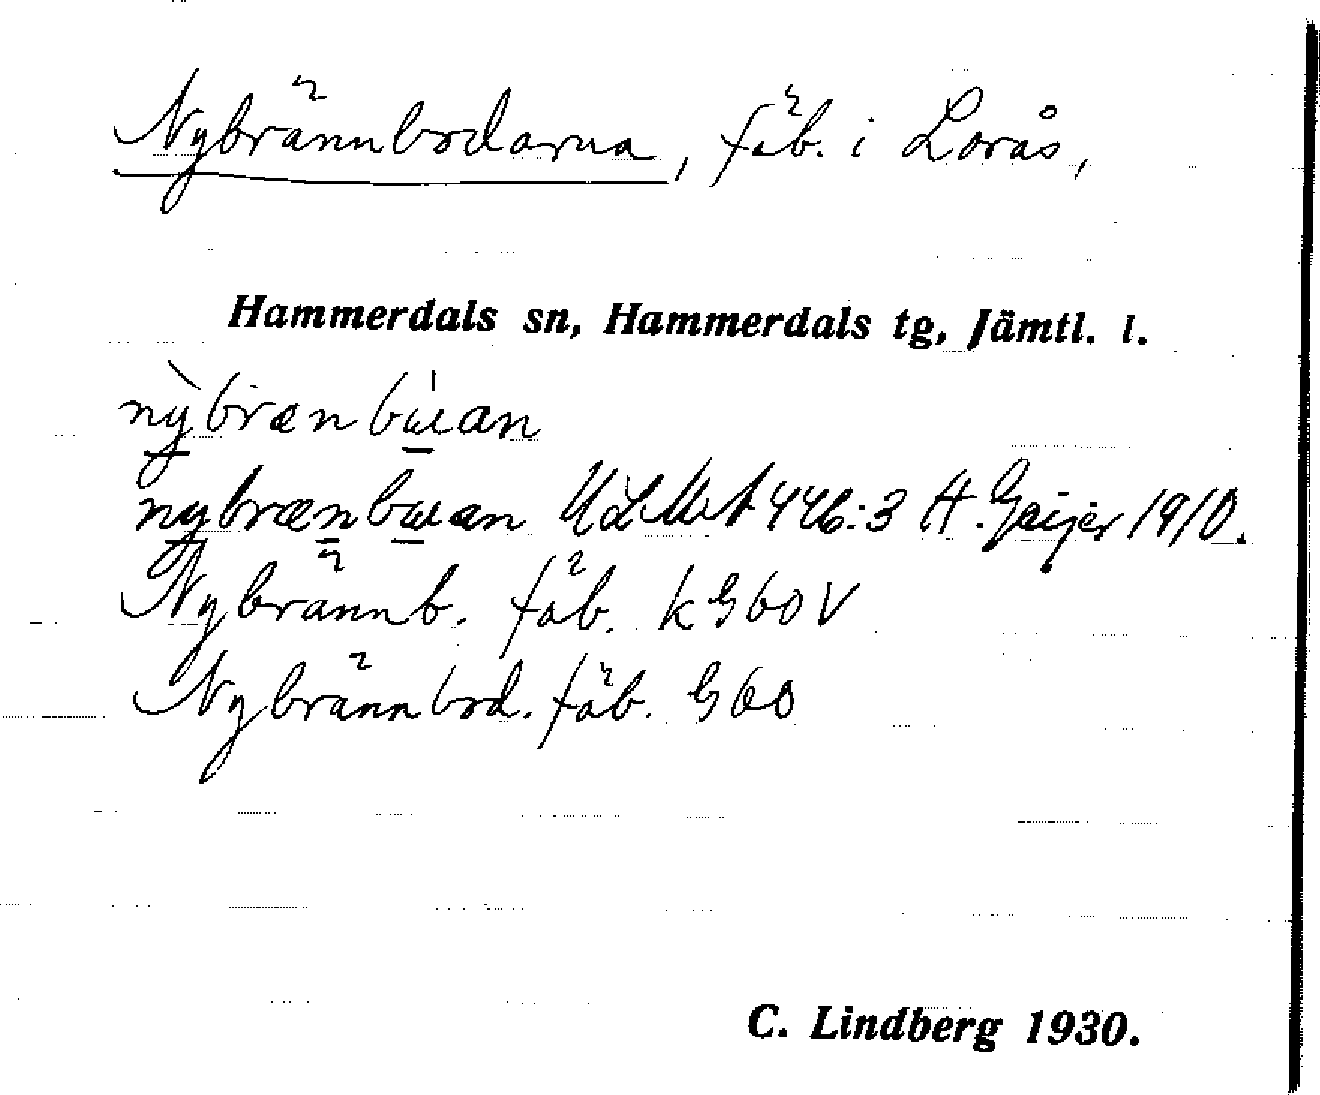 Nybrännbodarna, fäb. i Lorås,
Hammerdals sn, Hammerdals tg, Jämtl. l.
nỳbrænbu̇an
nybrænbuan ULMA 446:3 H. Geijer 1910.
Nybrännb. fäb. k G60V
Nybrännbod. fäb. G60
C. Lindberg 1930.